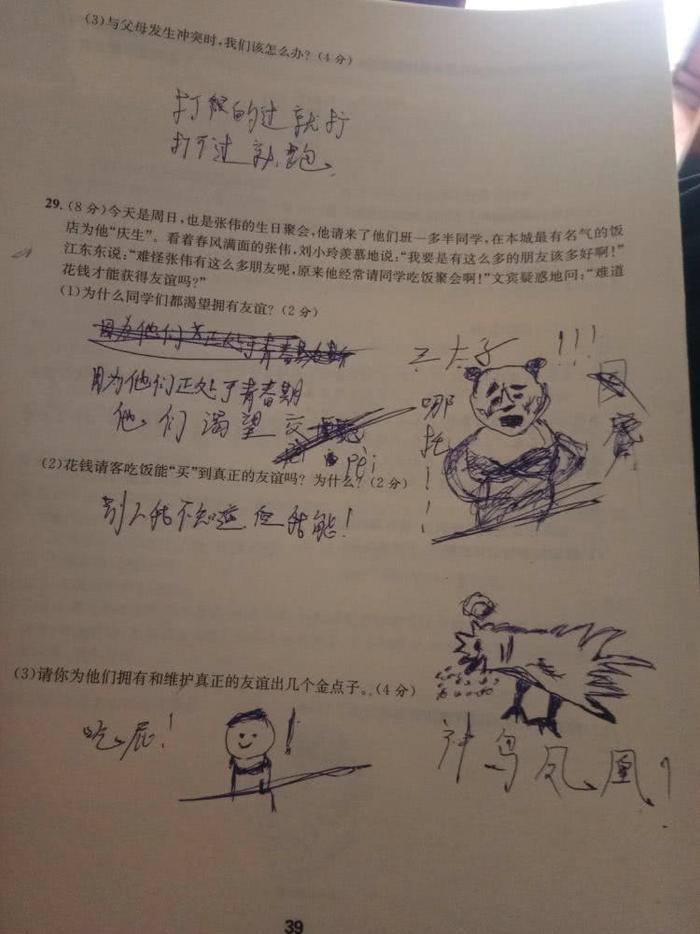 (3)与父母发生冲突时,我们该怎么办?(4分)
打得过就打
打不过就跑
29.(8分)今天是周日,也是张伟的生日聚会,他请来了他们班一多半同学,在本城最有名气的饭
店为他“庆生”。看着春风满面的张伟,刘小玲羡慕地说:“我要是有这么多的朋友该多好啊!”
江东东说:“难怪张伟有这么多朋友呢,原来他经常请同学吃饭聚会啊!”文宾疑惑地问:“难道
花钱才能获得友谊吗?”
(1)为什么同学们都渴望拥有友谊?(2分)
因为他们正处于青春期
因为他们正处于青春期
他们渴望交
pei
三太子!!!
哪托!!
(2)花钱请客吃饭能“买”到真正的友谊吗?为什么?(2分)
别人我不知道,但我能!
(3)请你为他们拥有和维护真正的友谊出几个金点子。(4分)
吃屁!
!
神鸟凤凰!
39